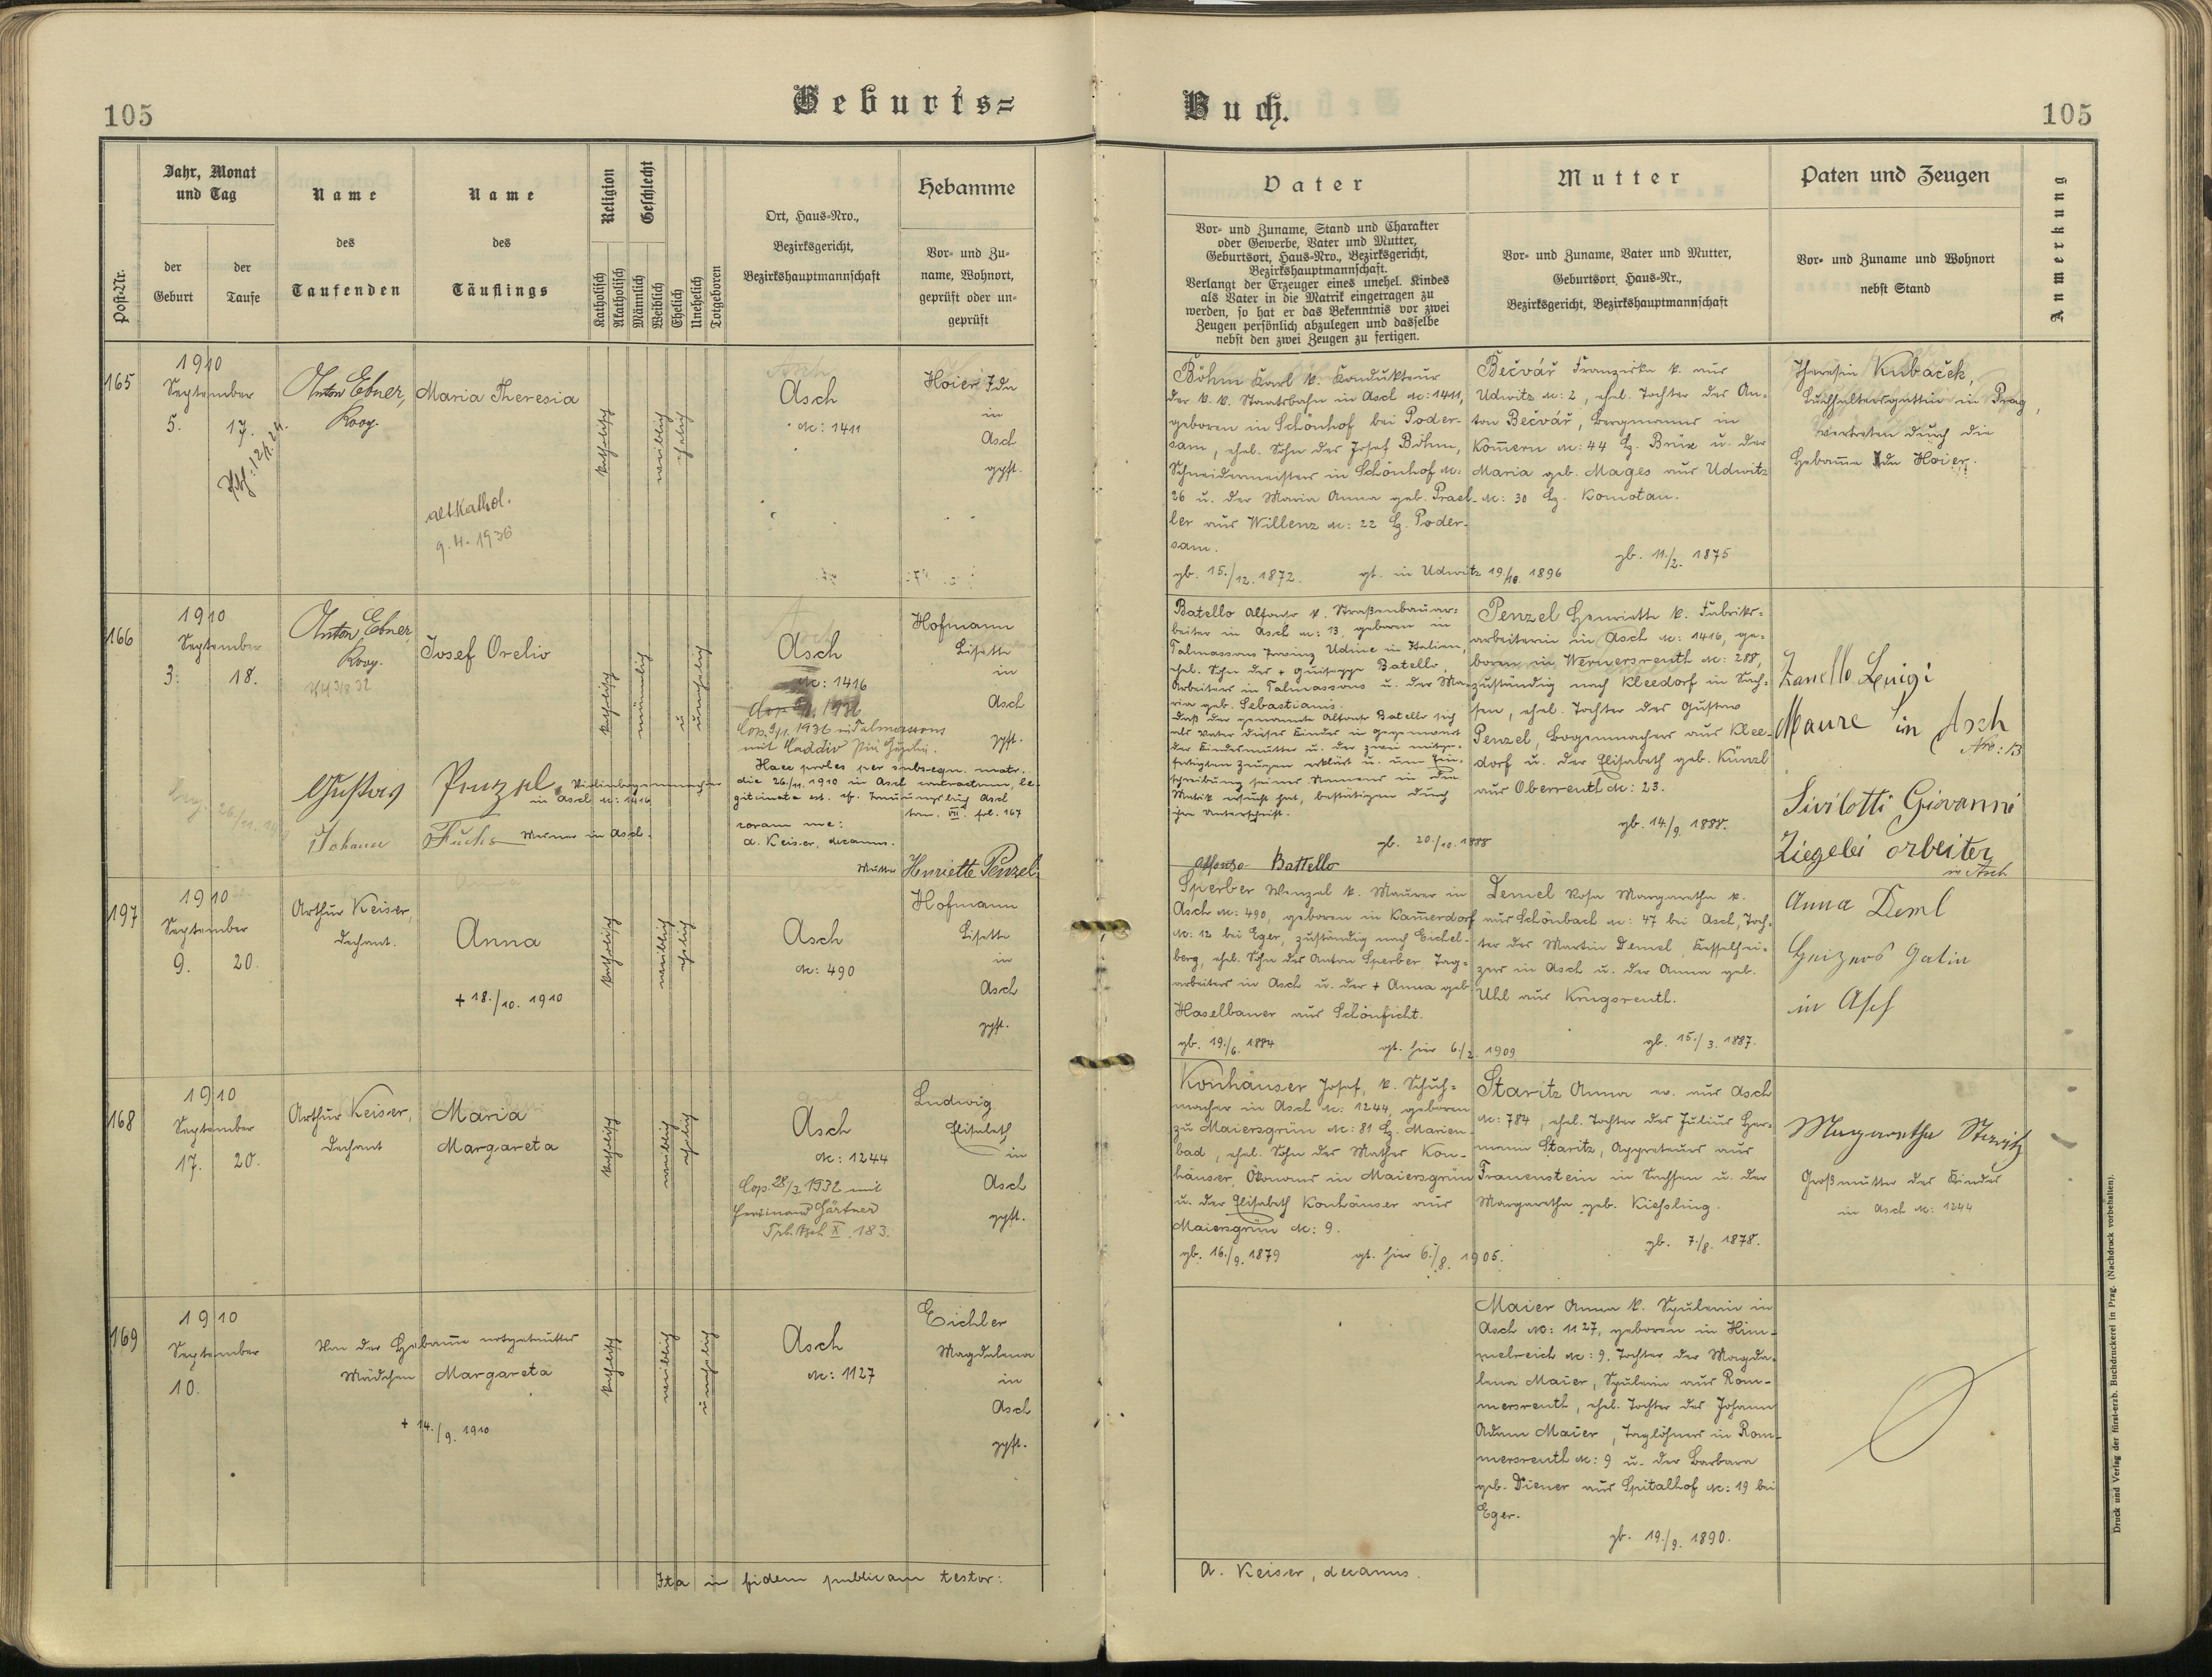 105
Geburts=
Buch.
105
Post-Nr.
Jahr, Monat
und Tag
der
Geburt
der
Taufe
Name
des
Taufenden
Name
des
Täuflings
Religion
Katholisch
Akatholisch
Geschlecht
Männlich
Weiblich
Ehelich
Unehelich
Totgeboren
Ort, Haus-Nro.,
Bezirksgericht,
Bezirkshauptmannschaft
Hebamme
Vor- und Zu-
name, Wohnort,
geprüft oder un-
geprüft
Vater
Vor- und Zuname, Stand und Charakter
oder Gewerbe, Vater und Mutter,
Geburtsort, Haus-Nro., Bezirksgericht,
Bezirkshauptmannschaft.
Verlangt der Erzeuger eines unehel. Kindes
als Vater in die Matrik eingetragen zu
werden, so hat er das Bekenntnis vor zwei
Zeugen persönlich abzulegen und dasselbe
nebst den zwei Zeugen zu fertigen.
Mutter
Vor- und Zuname, Vater und Mutter,
Geburtsort, Haus-Nr.,
Bezirksgericht, Bezirkshauptmannschaft
Paten und Zeugen
Vor- und Zuname und Wohnort
nebst Stand
Anmerkung
165
1910
September
5. 17.
Anton Ebner,
Koop.
Maria Theresia
altkathol.
9.4.1936
katholisch
weiblich
ehelich
Asch
N: 1411
Hoier Ida
in
Asch
gpft.
Böhm Karl k. Kondukteur
der k. k. Staatsbahn in Asch N: 1411,
geboren in Schönhof bei Poder-
sam, ehel. Sohn des Josef Böhm,
Schneidermeisters in Schönhof N:
26 u. der Maria Anna geb. Prael-
ler aus Willenz N: 22 Bz. Poder-
sam.
gb. 15./12. 1872. gt. in Udwitz 19/10. 1896
Bečvář Franziska k. aus
Udwitz N: 2, ehel. Tochter des An-
ton Bečvář, Bergmanns in
Komern N: 44 Bz. Brüx u. der
Maria geb. Mages aus Udwitz
N: 30 Bz. Komotau.
gb. 11./2. 1875
Theresia Kubáček,
Buchhaltersgattin in Prag,
vertreten durch die
Hebame Ida Hoier.
166
1910
September
3. 18.
Anton Ebner,
Koop.
Josef Orelio
katholisch
männlich
unehelich
Asch
N: 1416
Cop. 9/11. 1936 in Talmassons
Haec proles per subsequ. matr.
die 26./11. 1910 in Asch contractum, le-
gitimata est. cf. Trauungsbuch Asch
tom. VII. fol. 167
coram me:
A. Keiser, decanus.
Hofmann
Lisette
in
Asch
gpft.
Gustav Penzel
in Asch N: 1416
Johann Fuchs Maurer in Asch.
Mutter Henriette Penzel
Batello Alfonso k. Straßenbauar-
beiter in Asch N: 13, geboren in
Talmassons Provinz Udine in Italien,
ehel. Sohn des + Guiseppe Batello,
Arbeiters in Talmassons u. der Ma-
ria geb. Sebastianis.
Daß der genannte Alfonso Batello sich
als Vater dieses Kindes in Gegenwart
der Kindesmutter u. der zwei mitge-
fertigten Zeugen erklärt u. um Ein-
schreibung seines Namens in die
Matrik ersucht hat, bestätigen durch
ihre Unterschrift.
gb. 20./10. 1888
Alfonso Battello
Penzel Henriette k. Fabriks-
arbeiterin in Asch N: 1416, ge-
boren in Wernersreuth N: 288,
zuständig nach Kleedorf in Sach-
sen, ehel. Tochter des Gustav
Penzel, Bogenmachers aus Klee-
dorf u. der Elisabeth geb. Künzl
aus Oberreuth N: 23.
gb. 14./9. 1888.
Zanello Luigi
Maure in Asch
Nro: 13
Sivilotti Giovanni
Ziegelei orbeiter
in Asch
197
1910
September
9. 20.
Arthur Keiser,
Dechant.
Anna
+ 18./10. 1910
katholisch
weiblich
ehelich
Asch
N: 490
Hofmann
Lisette
in
Asch
gpft.
Sperber Wenzel k. Maurer in
Asch N: 490, geboren in Kamerdorf
N: 12 bei Eger, zuständig nach Eichel-
berg, ehel. Sohn des Anton Sperber Tag-
arbeiters in Asch u. der + Anna geb.
Haselbauer aus Schönficht.
gb. 19./6. 1884 gt. hier 6./2. 1909
Demel Rosa Margaretha k.
aus Schönbach N: 47 bei Asch, Toch-
ter des Martin Demel, Kesselhei-
zers in Asch u. der Anna geb.
Uhl aus Krugsreuth.
gb. 15./3. 1887.
Anna Deml
Heizers Gatin
in Asch
168
1910
September
17. 20.
Arthur Keiser,
Dechant
Maria
Margareta
katholisch
weiblich
ehelich
Asch
N: 1244
Cop. 28/3 1932 mit
Ferdinand Gärtner
Trb. Asch X. 183.
Ludwig
Elisabeth
in
Asch
gpft.
Konhäuser Josef, k. Schuh-
macher in Asch N: 1244, geboren
zu Maiersgrün N: 81 Bz. Marien-
bad, ehel. Sohn des Mathes Kon-
häuser, Ökonoms in Maiersgrün
u. der Elisabeth Konhäuser aus
Maiersgrün N: 9.
gb. 16./9. 1879 gt. hier 6./8. 1905.
Staritz Anna ev. aus Asch
N: 784, ehel. Tochter des Julius Her-
mann Staritz, Appreteurs aus
Frauenstein in Sachsen u. der
Margaretha geb. Kießling.
gb. 7./8. 1878.
Margaretha Staritz
Großmutter des Kindes
in Asch N: 1244
169
1910
September
10.
Von der Hebame notgetauftes
Mädchen Margareta
+ 14./9. 1910
katholisch
weiblich
unehelich
Asch
N: 1127
Eichler
Magdalena
in
Asch
gpft.
Maier Anna k. Spulerin in
Asch N: 1127, geboren in Him-
melreich N: 9, Tochter der Magda-
lena Maier, Spulerin aus Rom-
mersreuth, ehel. Tochter des Johann
Adam Maier, Taglöhners in Rom-
mersreuth N: 9 u. der Barbara
geb. Diener aus Spitalhof N: 19 bei
Eger.
gb. 19./9. 1890.
Ita in fidem publicam testor:
A. Keiser, decanus.
Druck und Verlag der fürst-erzb. Buchdruckerei in Prag. (Nachdruck vorbehalten).